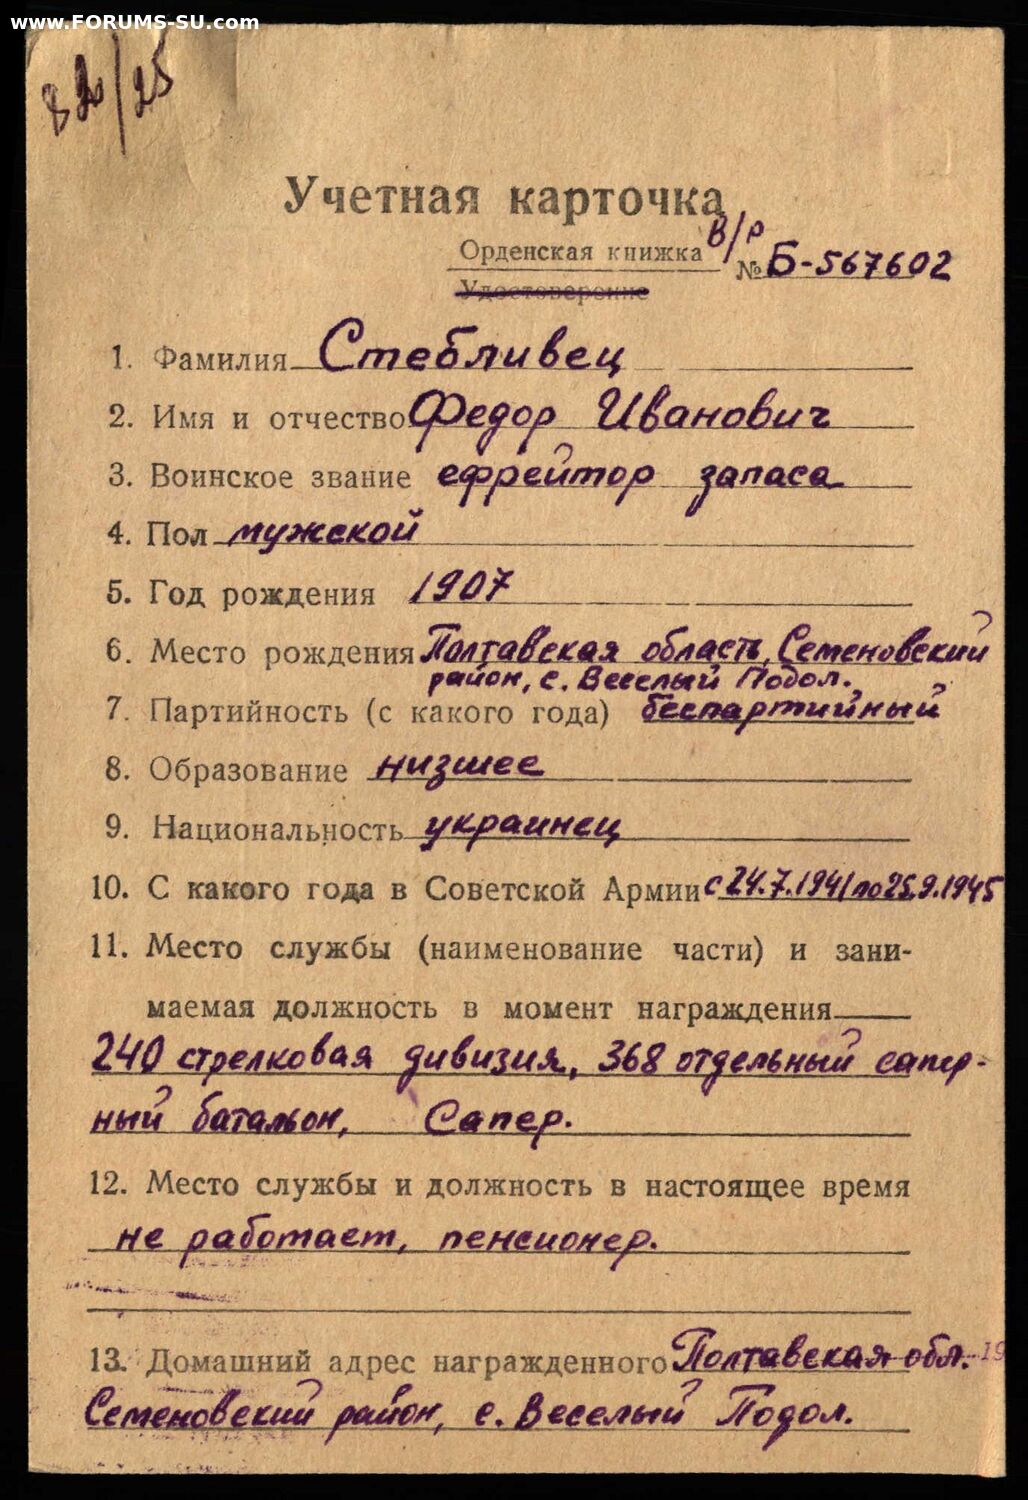 www.FORUMS-SU.com
82/25
Учетная карточка
Орденская книжка в/р № Б-567602
Удостоверение
1. Фамилия Стебливец
2. Имя и отчество Федор Иванович
3. Воинское звание ефрейтор запаса
4. Пол мужской
5. Год рождения 1907
6. Место рождения Полтавская область, Семеновский
район, с. Веселый Подол.
7. Партийность (с какого года) беспартийный
8. Образование низшее
9. Национальность украинец
10. С какого года в Советской Армии с 24.7.1941 по 25.9.1945
11. Место службы (наименование части) и зани-
маемая должность в момент награждения
240 стрелковая дивизия, 368 отдельный сапер-
ный батальон, Сапер.
12. Место службы и должность в настоящее время
не работает, пенсионер.
13. Домашний адрес награжденного Полтавская обл. 19
Семеновский район, с. Веселый Подол.